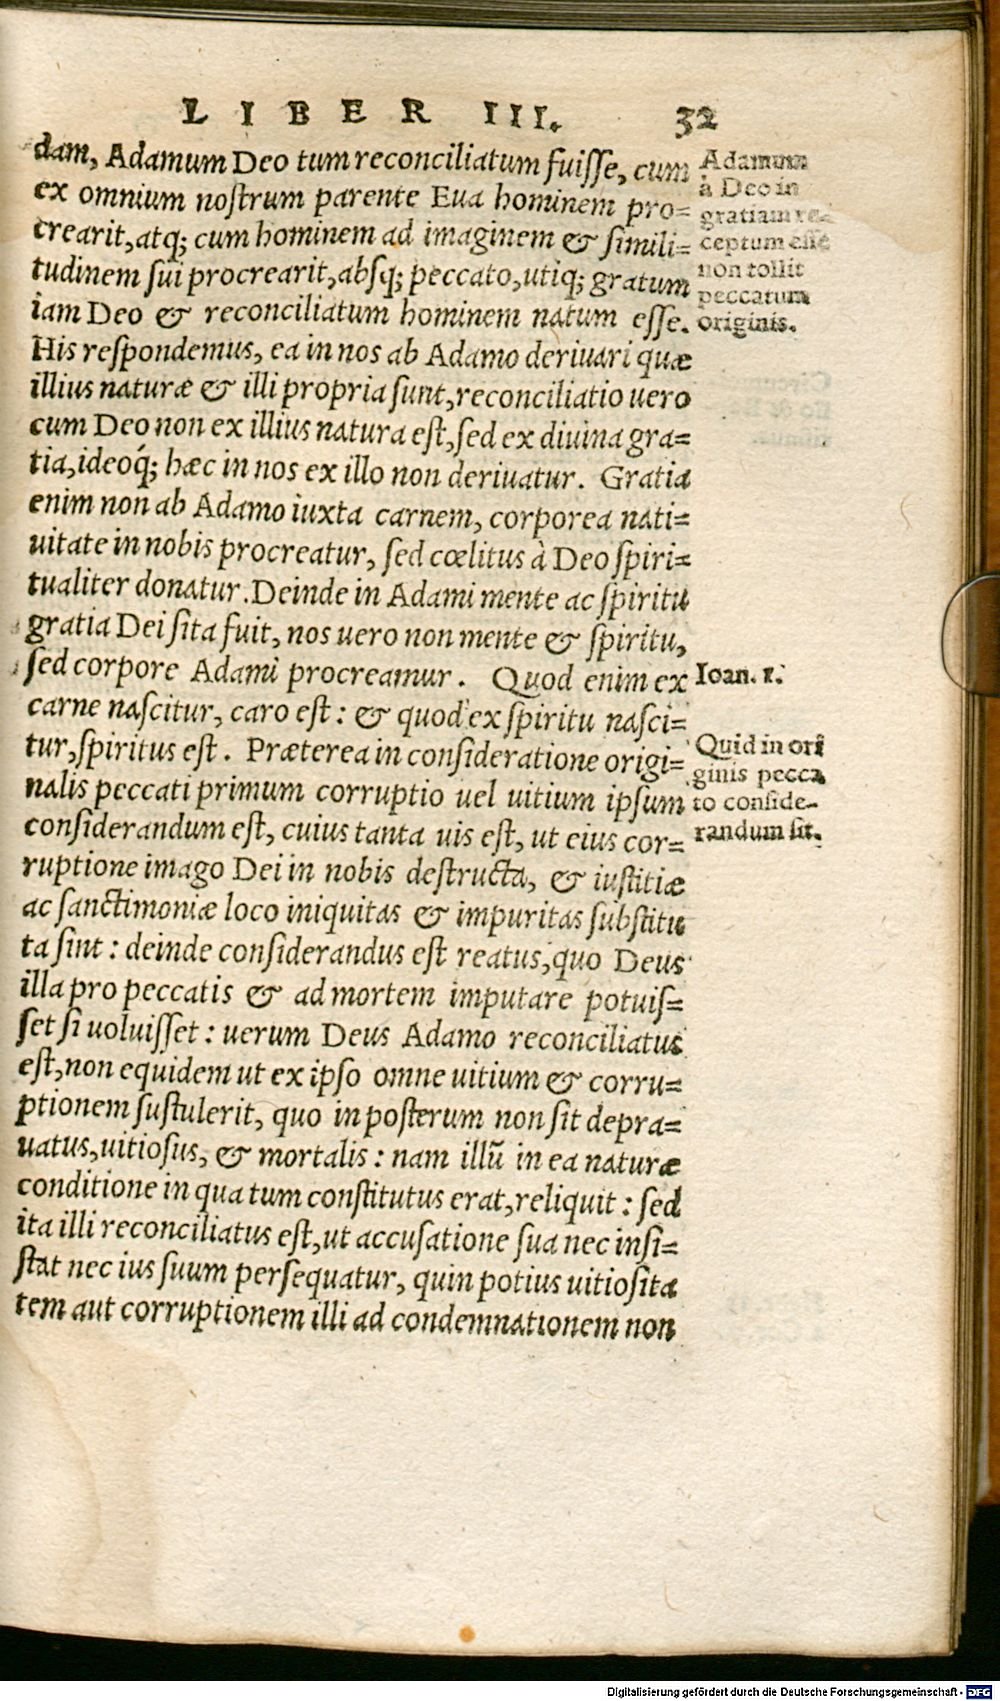 LIBER III. 32
dam, Adamum Deo tum reconciliatum fuiſſe, cum
ex omnium noſtrum parente Eua hominem pro=
crearit, atq; cum hominem ad imaginem & ſimili=
tudinem ſui procrearit, abſq; peccato, utiq; gratum
iam Deo & reconciliatum hominem natum eſſe.
His reſpondemus, ea in nos ab Adamo deriuari quæ
illius naturæ & illi propria ſunt, reconciliatio uero
cum Deo non ex illius natura eſt, ſed ex diuina gra=
tia, ideoq́; hæc in nos ex illo non deriuatur. Gratia
enim non ab Adamo iuxta carnem, corporea nati=
uitate in nobis procreatur, ſed cœlitus à Deo ſpiri=
tualiter donatur. Deinde in Adami mente ac ſpiritu
gratia Dei ſita fuit, nos uero non mente & ſpiritu,
ſed corpore Adami procreamur. Quod enim ex
carne naſcitur, caro eſt: & quod ex ſpiritu naſci=
tur, ſpiritus eſt. Præterea in conſideratione origi=
nalis peccati primum corruptio uel uitium ipſum
conſiderandum eſt, cuius tanta uis eſt, ut eius cor=
ruptione imago Dei in nobis deſtructa, & iuſtitiæ
ac ſanctimoniæ loco iniquitas & impuritas ſubſtitu
ta ſint: deinde conſiderandus eſt reatus, quo Deus
illa pro peccatis & ad mortem imputare potuiſ=
ſet ſi uoluiſſet: uerum Deus Adamo reconciliatus
eſt, non equidem ut ex ipſo omne uitium & corru=
ptionem ſuſtulerit, quo in poſterum non ſit depra=
uatus, uitioſus, & mortalis: nam illũ in ea naturæ
conditione in qua tum conſtitutus erat, reliquit: ſed
ita illi reconciliatus eſt, ut accuſatione ſua nec inſi=
ſtat nec ius ſuum perſequatur, quin potius uitioſita
tem aut corruptionem illi ad condemnationem non
Adamum
à Deo in
gratiam re-
ceptum eſſe
non tollit
peccatum
originis.
Ioan. 1.
Quid in ori
ginis pecca
to conſide-
randum ſit.
Digitalisierung gefördert durch die Deutsche Forschungsgemeinschaft - DFG